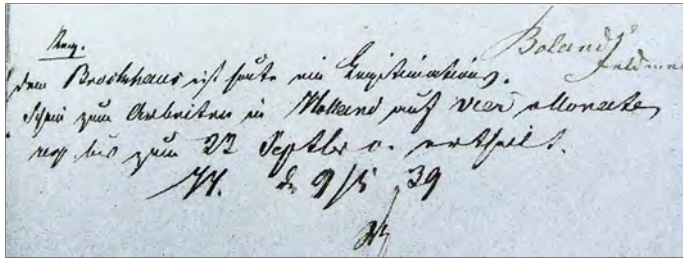 Boland
Reg.
dem Brockhaus ist heute ein Legitimations-
schein zum Arbeiten in Holland auf vier Monate
bis zum 22 Septbr c. ertheilt.
d 9/5 39